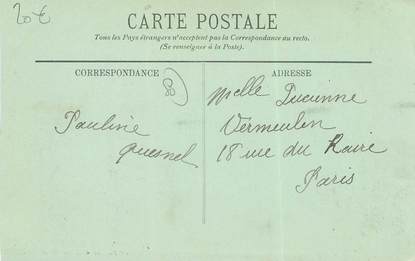 20€
CARTE POSTALE
Tous les Pays étrangers n'acceptent pas la Correspondance au recto.
(Se renseigner à la Poste).
CORRESPONDANCE
ADRESSE
Pauline
Quesnel
Melle Lucienne
Vermeulen
18 rue du Roule
Paris